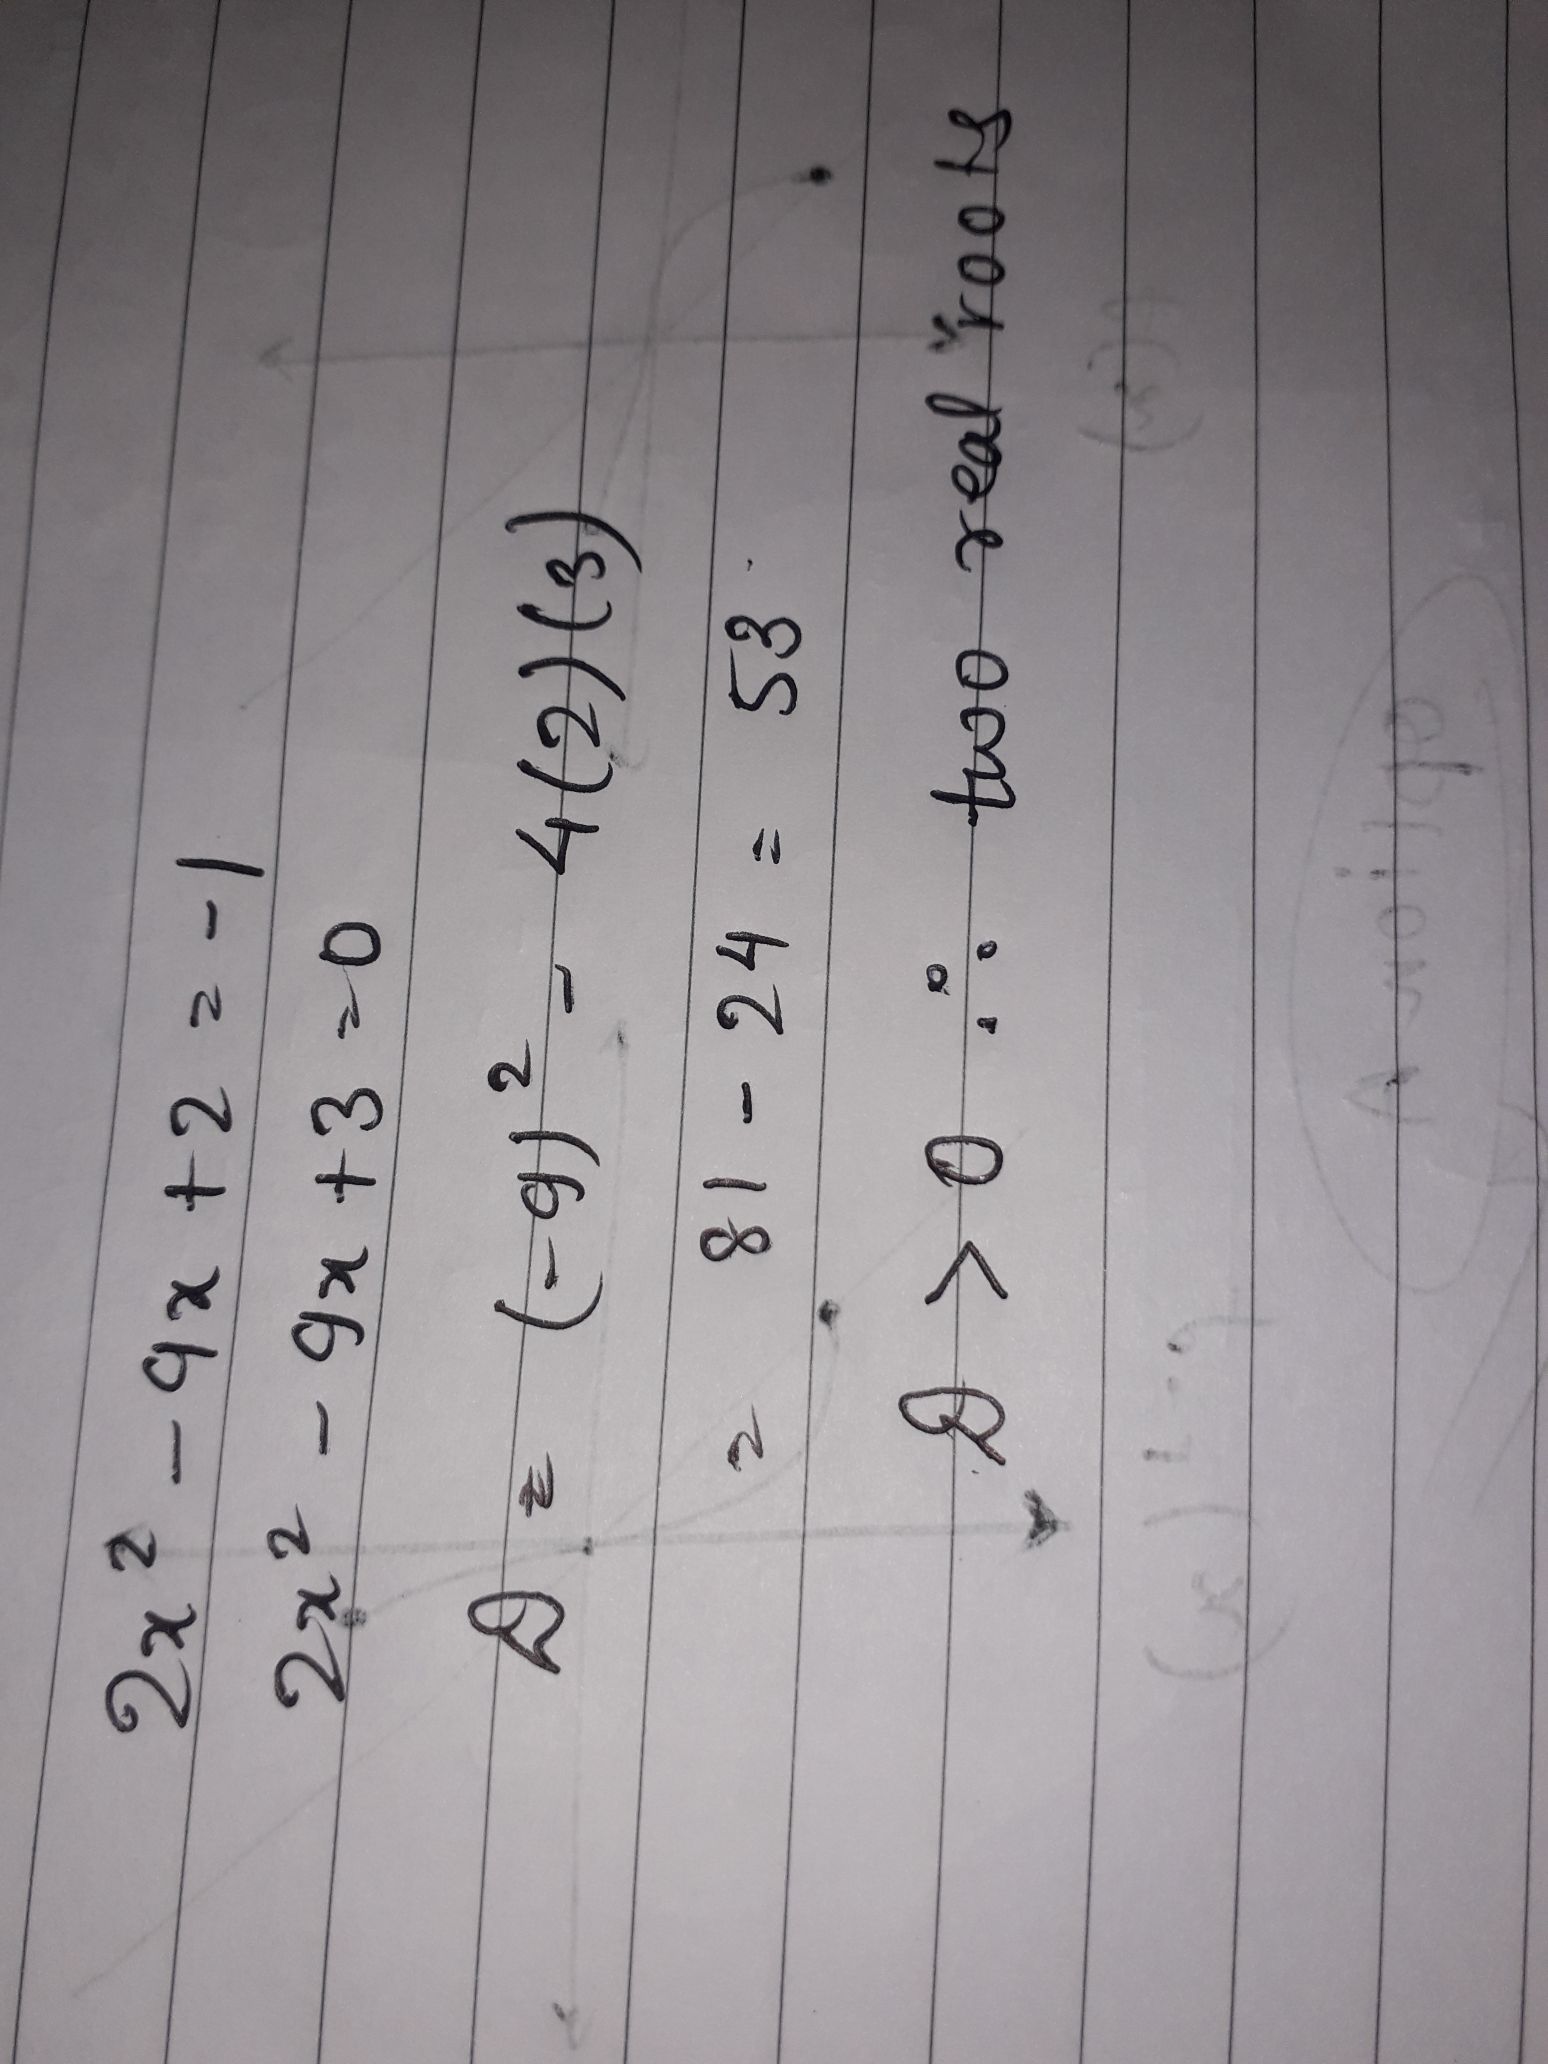 2x² - 9x + 2 = -1
2x² - 9x + 3 = 0
D = (-9)² - 4(2)(3)
= 81 - 24 = 53
D > 0 ∴ two real roots